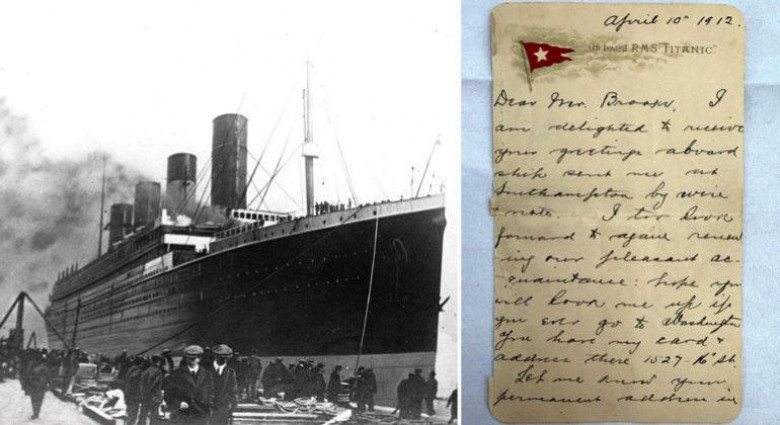 April 10" 1912.
On board R.M.S. "TITANIC"
Dear Mr. Brooks, I
am delighted to receive
your greetings aboard
ship sent me at
Southampton by wire
note. I too look
forward to again renew
ing our pleasant ac-
quaintance: hope you
will look me up if
you ever go to Washington
You have my card &
address there 1527- K St.
Let me know your
permanent address in